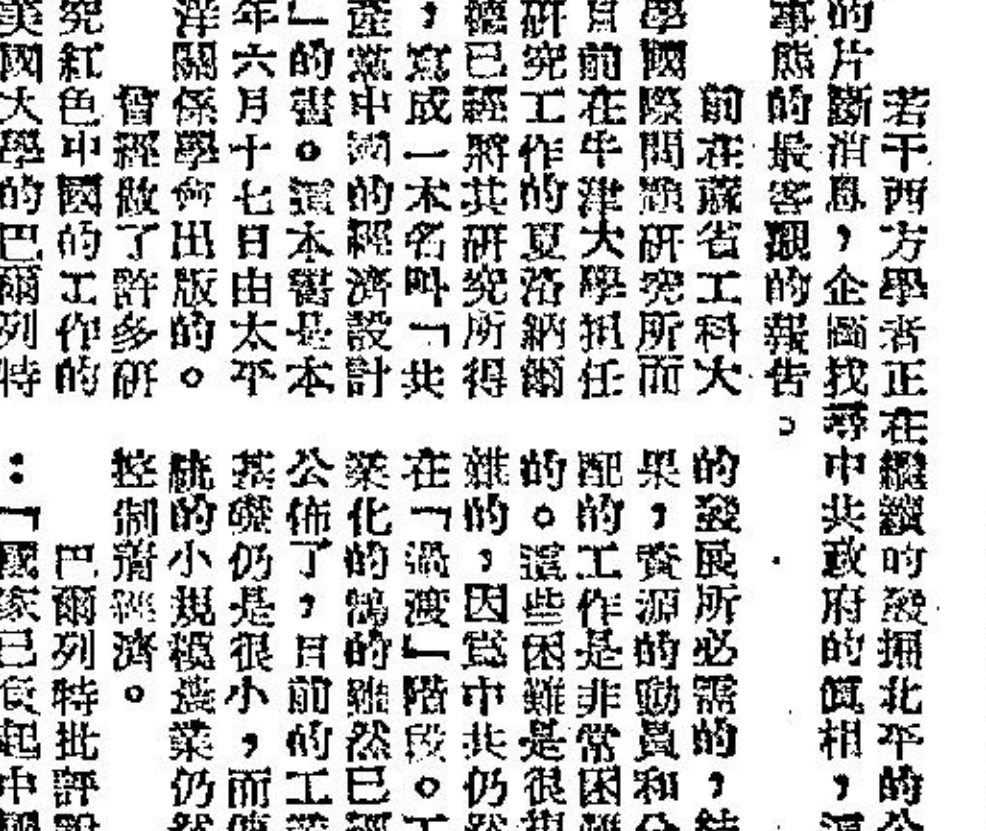 若干西方學者正在繼續的發掘北平的公
的片斷消息，企圖找尋中共政府的眞相，這
事態的最客觀的報告。
前在蔴省工科大
學國際問題研究所而
目前在牛津大學担任
研究工作的夏洛納爾
德已經將其研究所得
，寫成一本名叫「共
產黨中國的經濟設計
」的書。這本書是本
年六月十七日由太平
洋關係學會出版的。
曾經做了許多研
究紅色中國的工作的
美國大學的巴爾列特
的發展所必需的，結
果，資源的動員和分
配的工作是非常困難
的。這些困難是很複
雜的，因爲中共仍然
在「過渡」階段。工
業化的鵠的雖然已經
公佈了，目前的工業
基礎仍是很小，而傳
統的小規模農業仍然
控制着經濟。
巴爾列特批評說
：「國家已負起中國